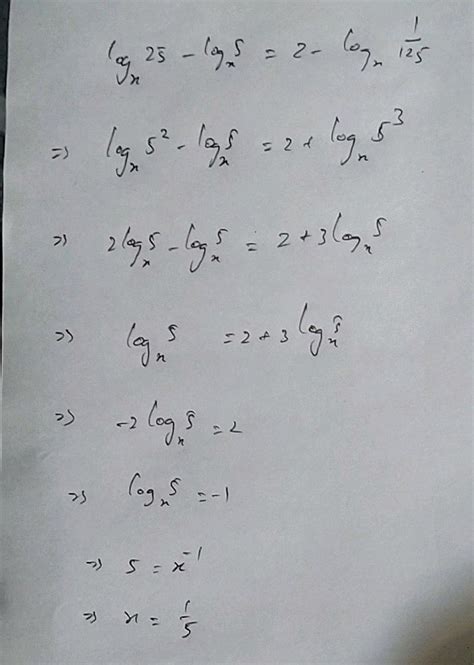 logₓ 25 - logₓ 5 = 2 - logₓ 1/125
=> logₓ 5² - logₓ 5 = 2 + logₓ 5³
=> 2 logₓ 5 - logₓ 5 = 2 + 3 logₓ 5
=> logₓ 5 = 2 + 3 logₓ 5
=> -2 logₓ 5 = 2
=> logₓ 5 = -1
=> 5 = x⁻¹
=> x = 1/5